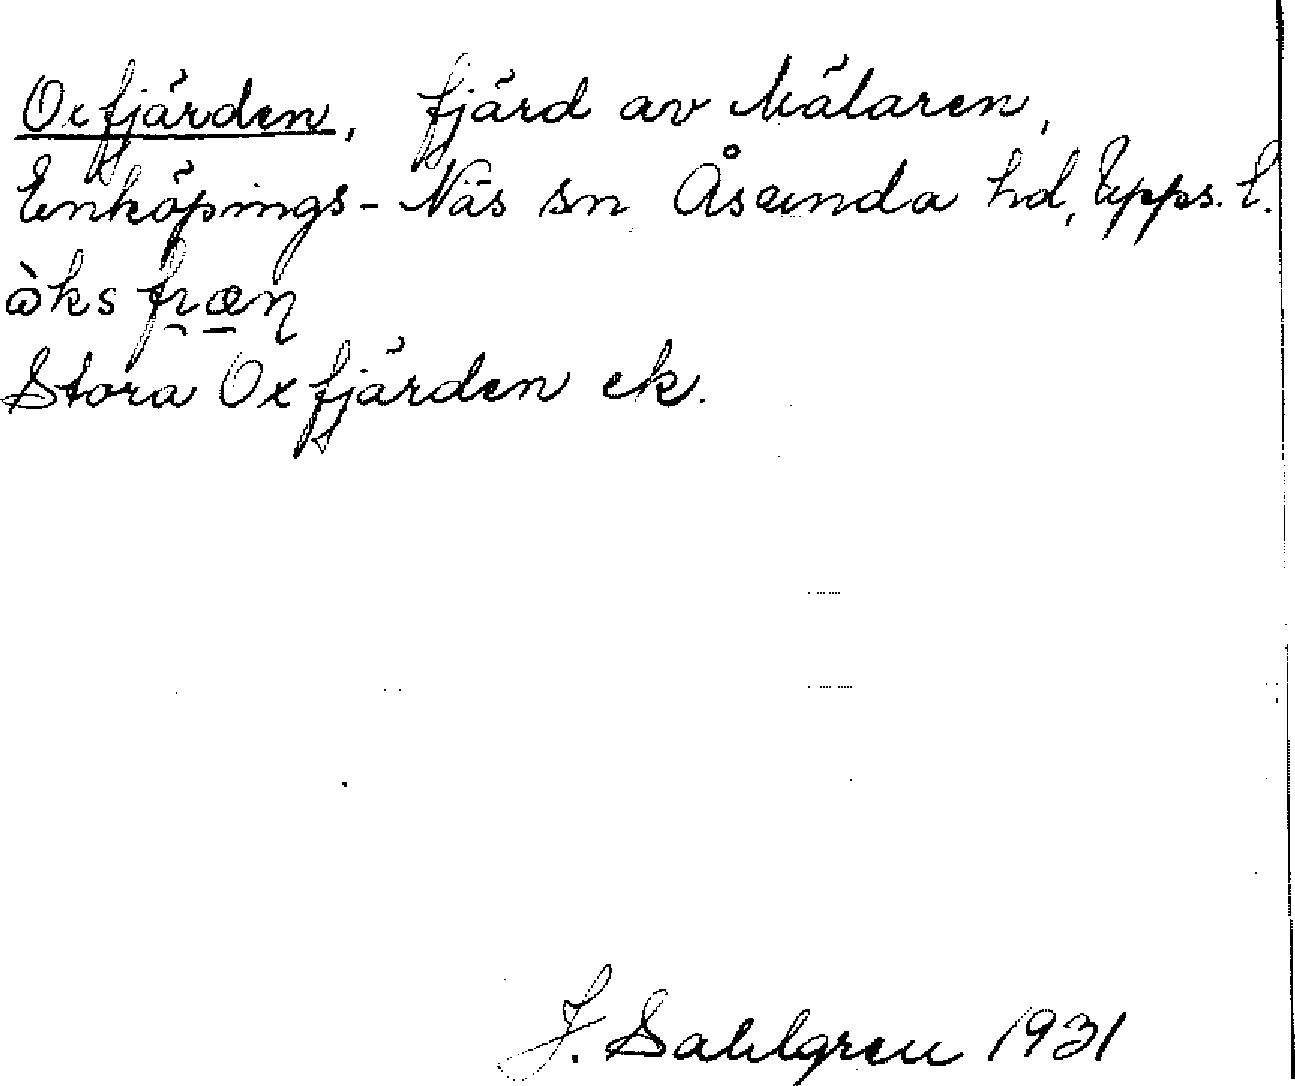 Oxfjärden, fjärd av Mälaren,
Enköpings-Näs sn Åsunda hd, Upps. l.
ὼks fræn
Stora Oxfjärden ek.
J. Sahlgren 1931